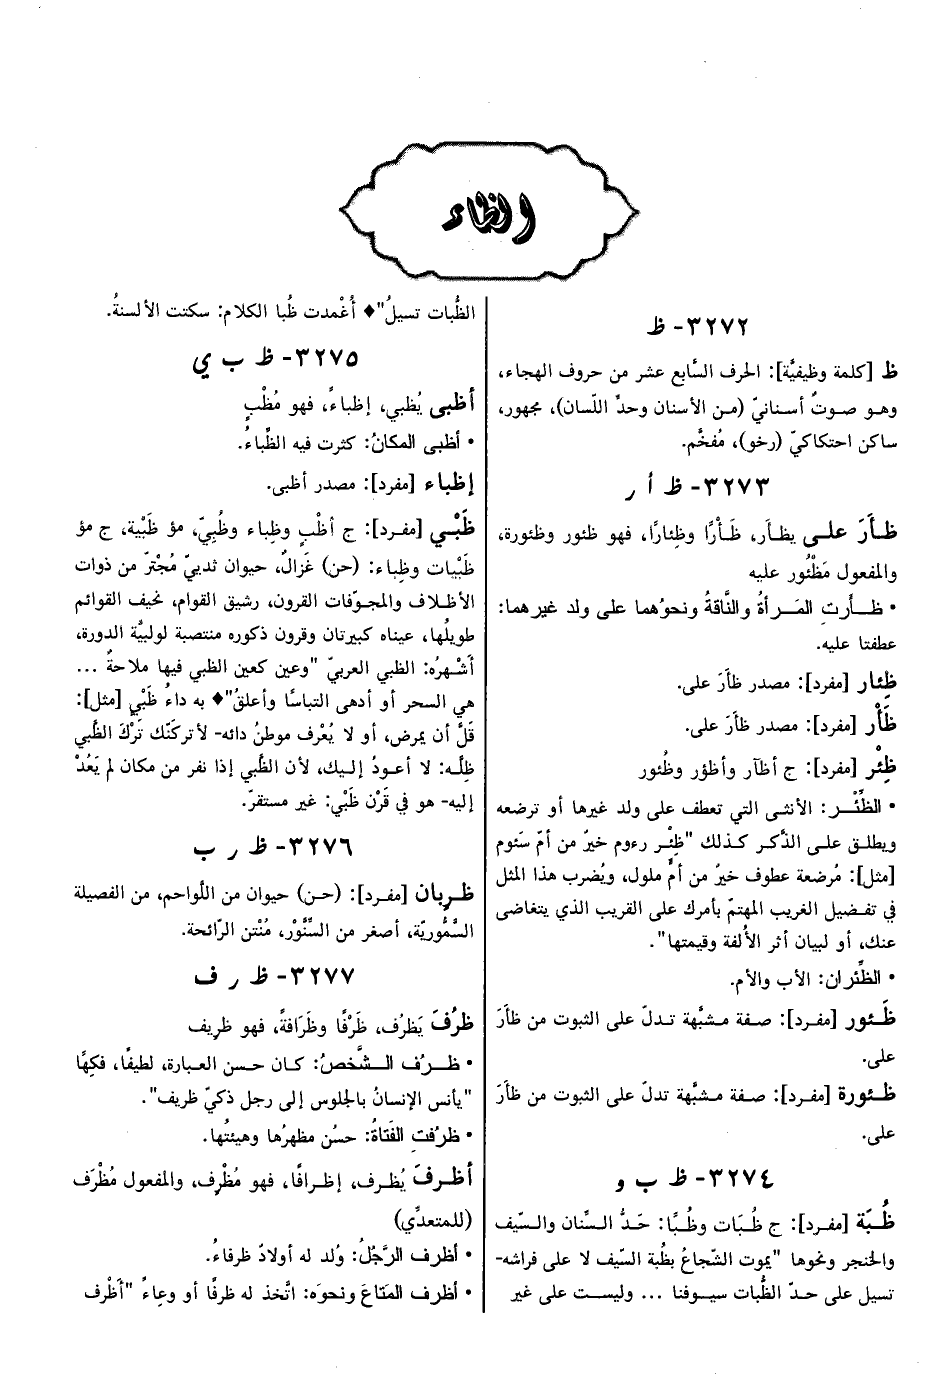 الظاء
٣٢٧٢- ظ
ظ [كلمة وظيفيَّة]: الحرف السَّابع عشر من حروف الهجاء،
وهو صوتٌ أسنانيّ (من الأسنان وحدِّ اللّسان)، مجهور،
ساكن احتكاكيّ (رخو)، مُفخَّم.
٣٢٧٣- ظ أ ر
ظأَرَ على يظأَر، ظَأْرًا وظِئارًا، فهو ظئور وظئورة،
والمفعول مَظْئُور عليه
• ظأرتِ المَرأةُ والنَّاقةُ ونحوُهما على ولد غيرهما:
عطفتا عليه.
ظِئار [مفرد]: مصدر ظأَرَ على.
ظَأْر [مفرد]: مصدر ظأَرَ على.
ظِئْر [مفرد]: ج أظآر وأظؤر وظُئور
• الظِّئْر: الأنثى التي تعطف على ولد غيرها أو ترضعه
ويطلق على الذَّكر كذلك "ظِئْر رءوم خيرٌ من أمّ سَئوم
[مثل]: مُرضعة عطوف خيرٌ من أمٍّ ملول، ويُضرب هذا المثل
في تفضيل الغريب المهتمّ بأمرك على القريب الذي يتغاضى
عنك، أو لبيان أثر الأُلفة وقيمتها".
• الظِّئران: الأب والأم.
ظَئور [مفرد]: صفة مشبَّهة تدلّ على الثبوت من ظأَرَ
على.
ظئورة [مفرد]: صفة مشبَّهة تدلّ على الثبوت من ظأَرَ
على.
٣٢٧٤- ظ ب و
ظُبَة [مفرد]: ج ظُبَات وظُبًا: حَدُّ السِّنان والسَّيف
والخنجر ونحوها "يموت الشّجاعُ بظُبة السَّيف لا على فراشه-
تسيل على حدّ الظُّبات سيوفنا ... وليست على غير
الظُّبات تسيلُ"♦ أُغْمدت ظُبا الكلام: سكتت الألسنةُ.
٣٢٧٥- ظ ب ي
أظبى يُظبي، إظباءً، فهو مُظْبٍ
• أظبى المكانُ: كثرت فيه الظِّباءُ.
إظباء [مفرد]: مصدر أظبى.
ظَبْي [مفرد]: ج أظْبٍ وظِباء وظُبِيّ، مؤ ظَبْية، ج مؤ
ظَبْيات وظِباء: (حن) غَزالٌ، حيوان ثدييّ مُجْترّ من ذوات
الأظلاف والمجوّفات القرون، رشيق القوام، نحيف القوائم
طويلُها، عيناه كبيرتان وقرون ذكوره منتصبة لولبيَّة الدورة،
أَشْهرُه: الظبي العربيّ "وعين كعين الظبي فيها ملاحةٌ ...
هي السحر أو أدهى التباسًا وأعلقُ"♦ به داءُ ظَبْيٍ [مثل]:
قلّ أن يمرض، أو لا يُعْرف موطنُ دائه- لأتركنّك تَرْكَ الظَّبي
ظِلَّه: لا أعودُ إليك، لأن الظَّبي إذا نفر من مكان لم يَعُدْ
إليه- هو في قَرْن ظَبْي: غير مستقرّ.
٣٢٧٦- ظ ر ب
ظَرِبان [مفرد]: (حن) حيوان من اللَّواحم، من الفصيلة
السَّمُّوريّة، أصغر من السِّنَّوْر، مُنْتن الرَّائحة.
٣٢٧٧- ظ ر ف
ظرُفَ يَظرُف، ظَرْفًا وظَرَافةً، فهو ظرِيف
• ظرُف الشَّخصُ: كان حسن العبارة، لطيفًا، فكِهًا
"يأنس الإنسانُ بالجلوس إلى رجل ذكيّ ظريف".
• ظرُفتِ الفَتاةُ: حسُن مظهرُها وهيئتُها.
أظرفَ يُظرف، إظرافًا، فهو مُظْرِف، والمفعول مُظْرَف
(للمتعدِّي)
• أظرف الرَّجُلُ: وُلد له أولادٌ ظرفاءُ.
• أظرف المَتاعَ ونحوَه: اتَّخذ له ظرفًا أو وعاءً "أَظْرف